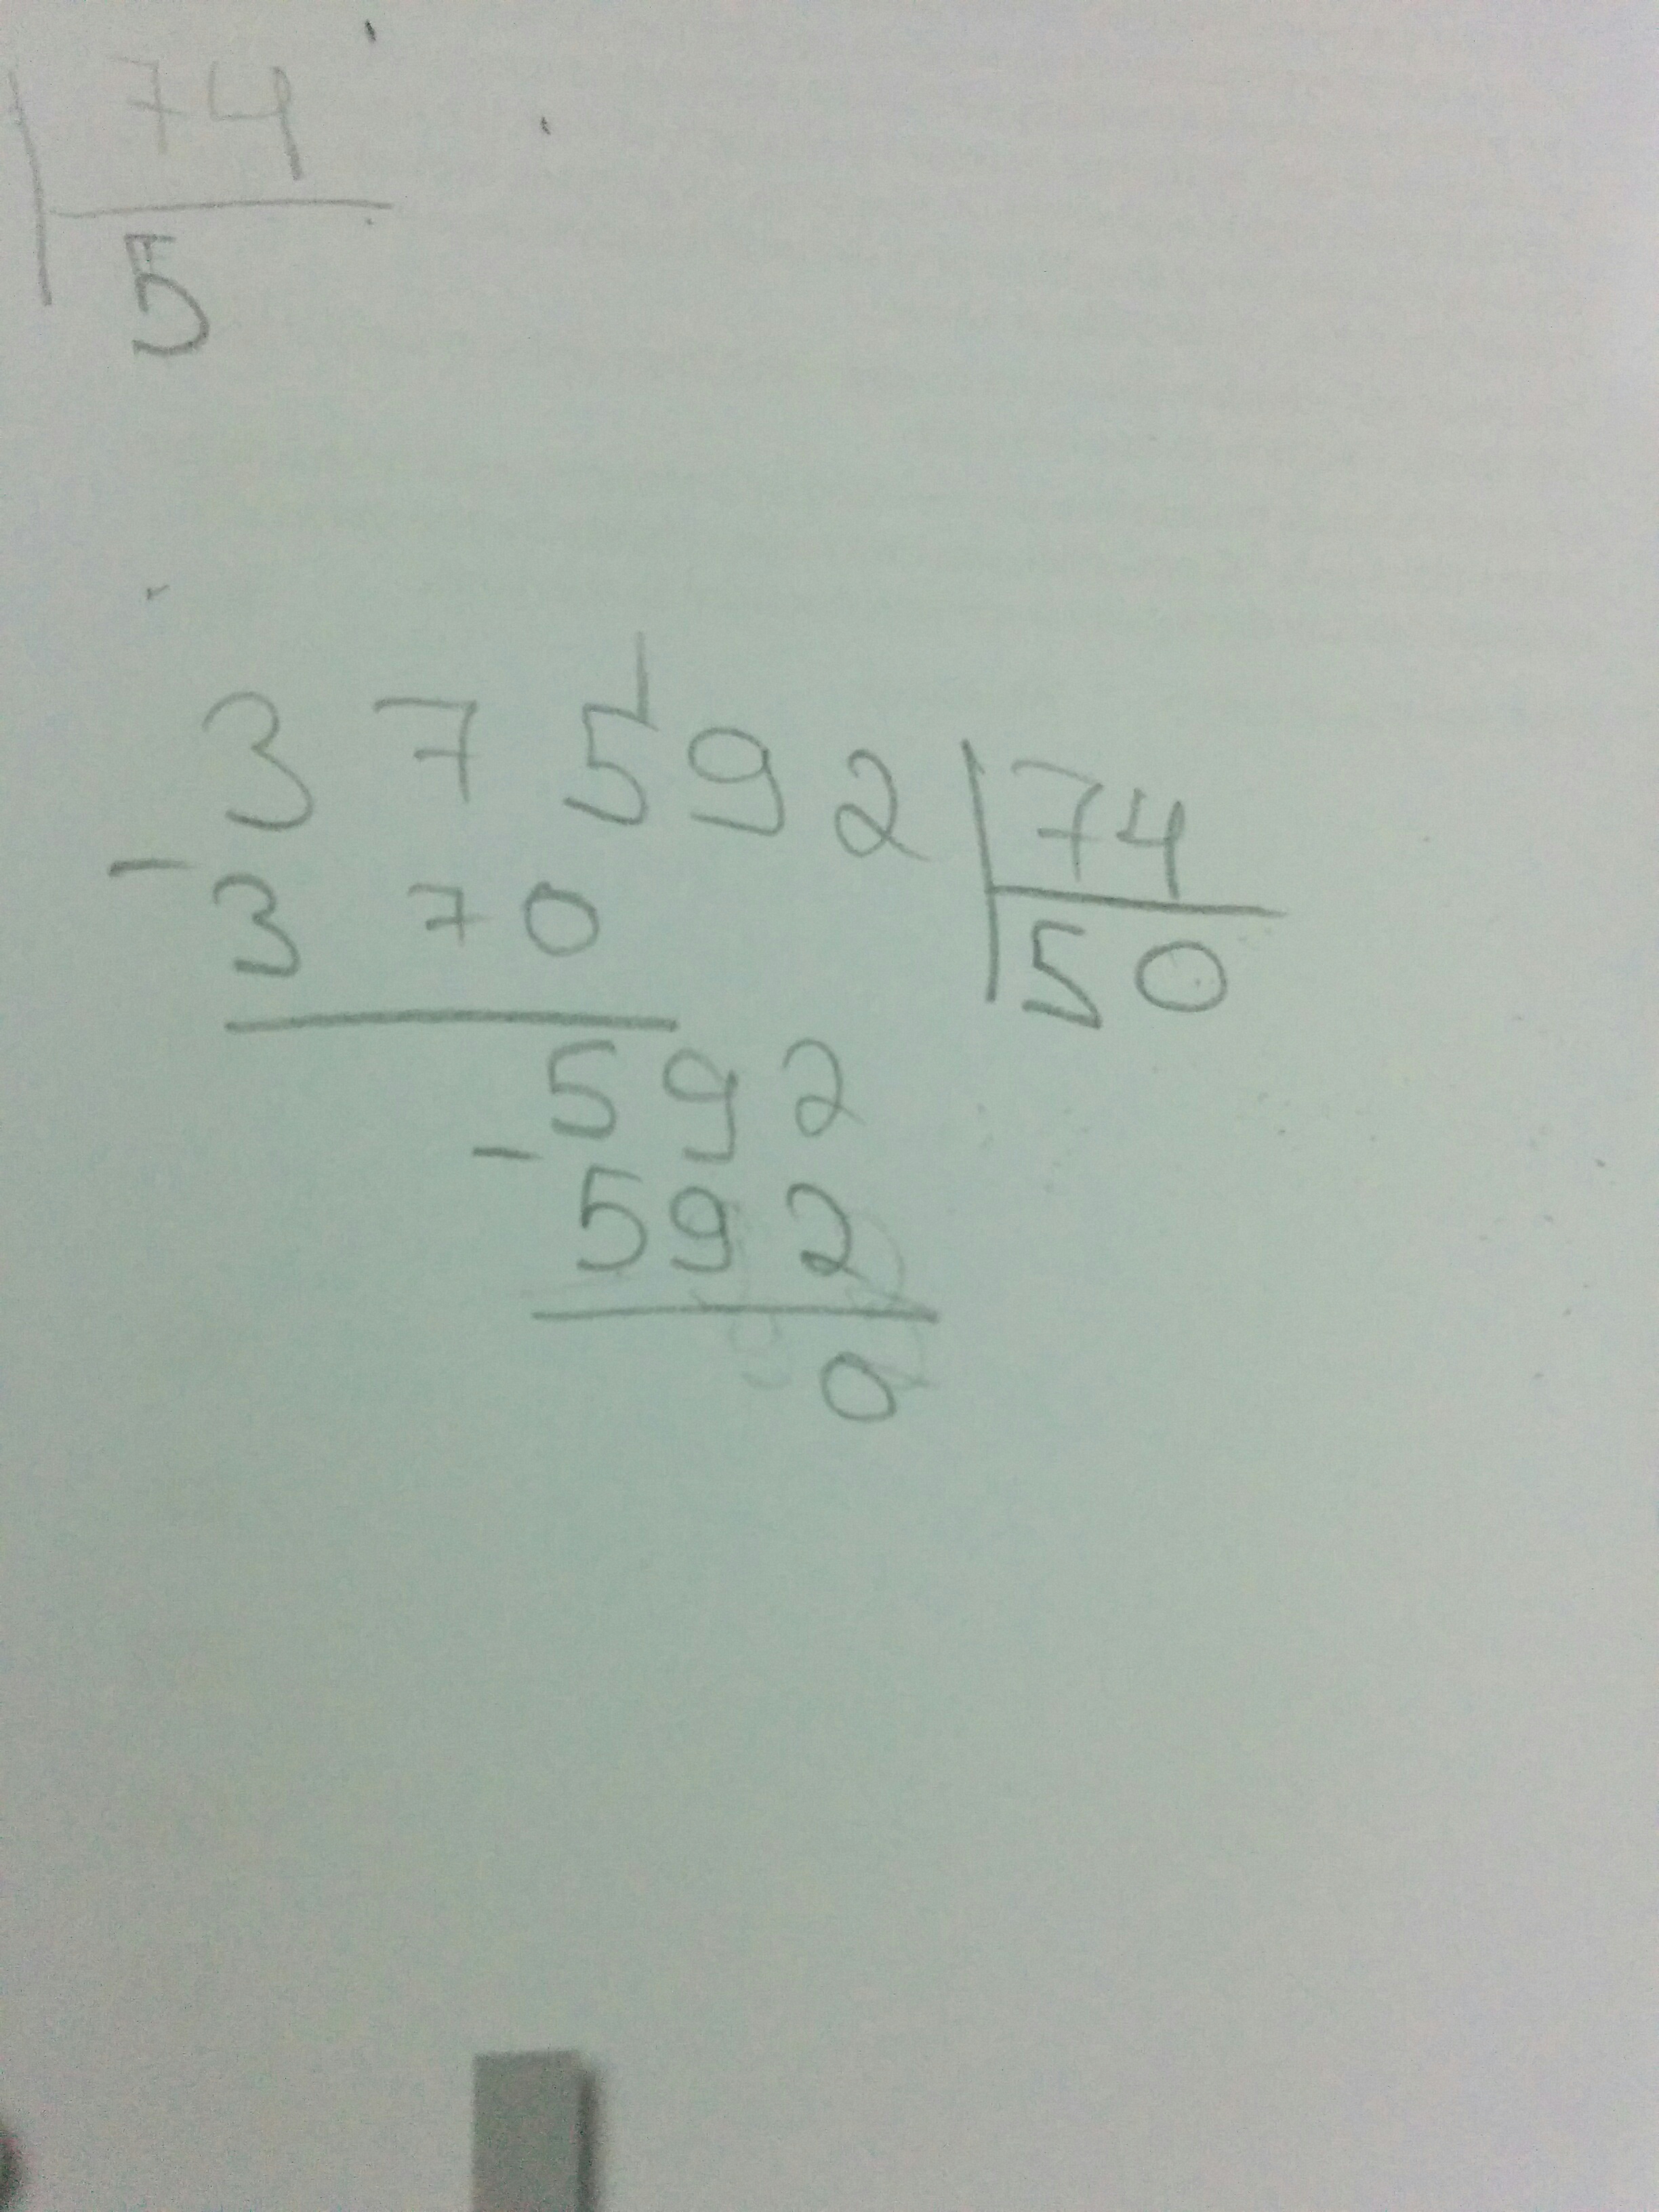 74
5
37592 74
- 370 50
592
- 592
0